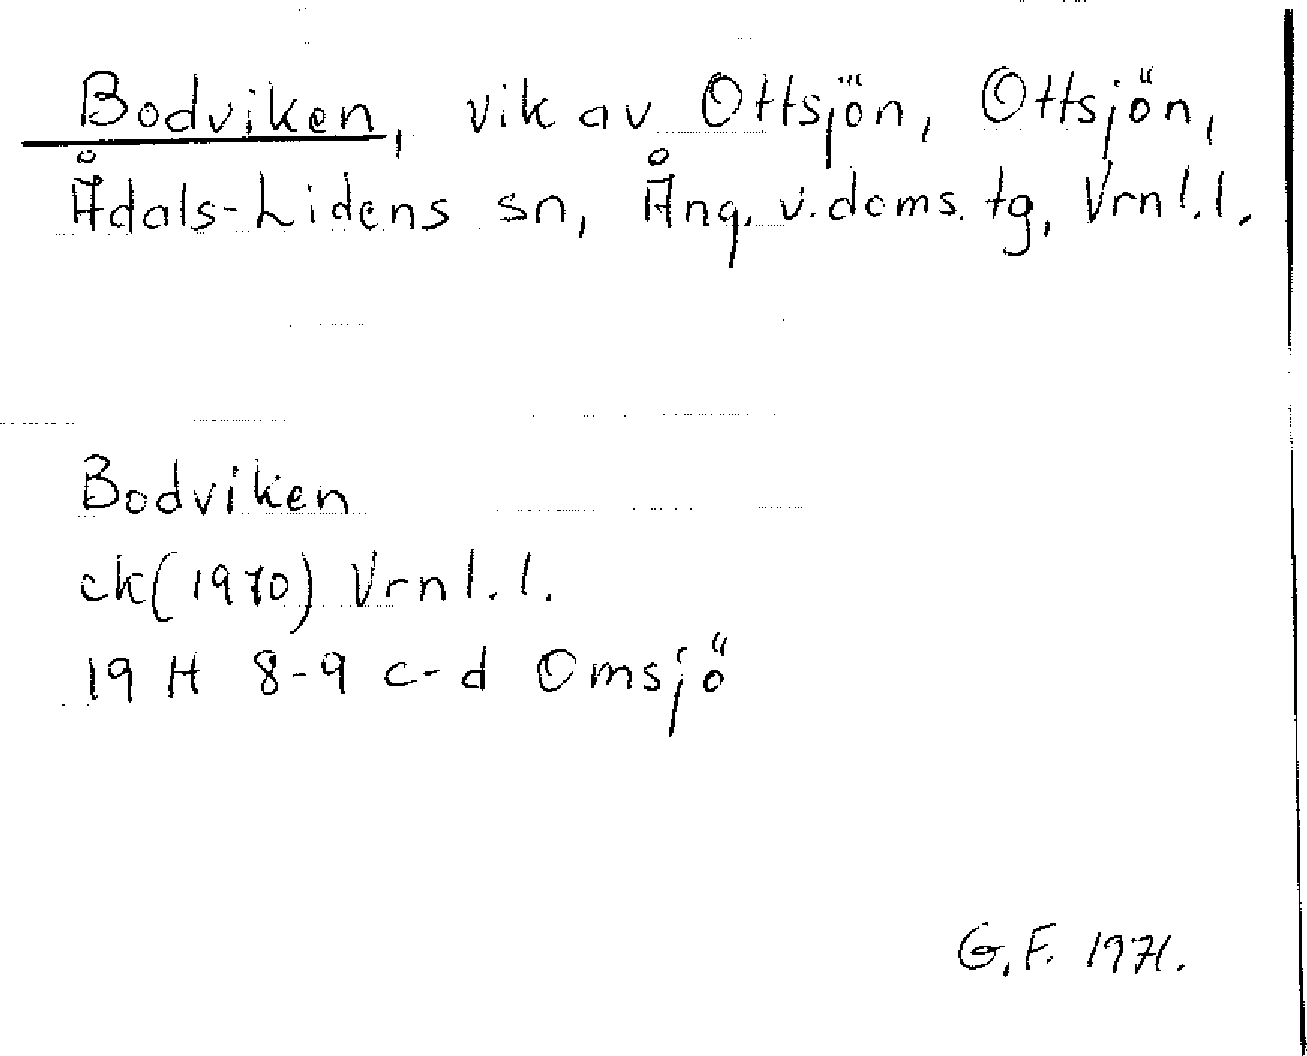 Bodviken, vik av Ottsjön, Ottsjön,
Ådals-Lidens sn, Ång. v. doms. tg, Vrnl.l.
Bodviken
ek(1970) Vrnl.l.
19 H 8-9 c-d Omsjö
G.F. 1971.